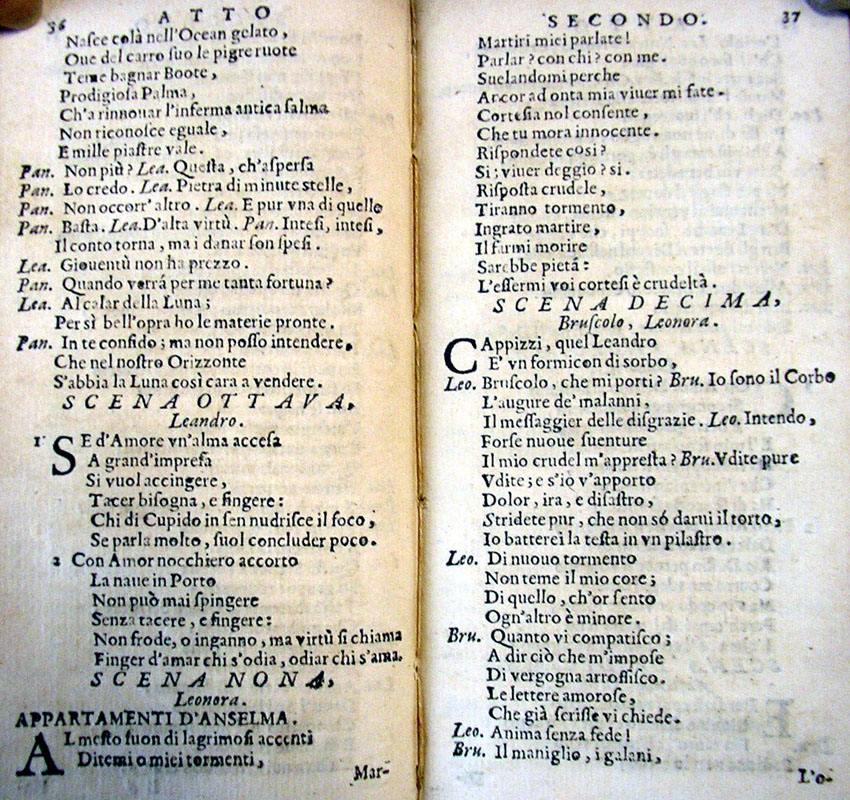 36 ATTO
Nasce colà nell'Ocean gelato,
Oue del carro suo le pigre ruote
Teme bagnar Boote,
Prodigiosa Palma,
Ch'a rinouar l'inferma antica salma
Non riconosce eguale,
E mille piastre vale.
Pan. Non più? Lea. Questa, ch'aspersa
Pan. Lo credo. Lea. Pietra di minute stelle,
Pan. Non occorr'altro. Lea. E pur vna di quelle
Pan. Basta. Lea. D'alta virtù. Pan. Intesi, intesi,
Il conto torna, ma i danar son spesi.
Lea. Giouentù non ha prezzo.
Pan. Quando verrá per me tanta fortuna?
Lea. Al calar della Luna;
Per sì bell'opra ho le materie pronte.
Pan. In te confido; ma non posso intendere,
Che nel nostro Orizzonte
S'abbia la Luna così cara a vendere.
SCENA OTTAVA,
Leandro.
1 SE d'Amore vn'alma accesa
A grand'impresa
Si vuol accingere,
Tacer bisogna, e fingere:
Chi di Cupido in sen nudrisce il foco,
Se parla molto, suol concluder poco.
2 Con Amor nocchiero accorto
La naue in Porto
Non può mai spingere
Senza tacere, e fingere:
Non frode, o inganno, ma virtù si chiama
Finger d'amar chi s'odia, odiar chi s'ama.
SCENA NONA,
Leonora.
APPARTAMENTI D'ANSELMA.
AL mesto suon di lagrimosi accenti
Ditemi o miei tormenti,
Mar-
SECONDO. 37
Martiri miei parlate!
Parlar? con chi? con me.
Suelandomi perche
Ancor ad onta mia viuer mi fate.
Cortesia nol consente,
Che tu mora innocente.
Rispondete così?
Si; viuer deggio? si.
Risposta crudele,
Tiranno tormento,
Ingrato martire,
Il farmi morire
Sarebbe pietá:
L'essermi voi cortesi è crudeltà.
SCENA DECIMA,
Bruscolo, Leonora.
CAppizzi, quel Leandro
E' vn formicon di sorbo,
Leo. Bruscolo, che mi porti? Bru. Io sono il Corbo
L'augure de' malanni,
Il messaggier delle disgrazie. Leo. Intendo,
Forse nuoue suenture
Il mio crudel m'appresta? Bru. Vdite pure
Vdite; e s'io v'apporto
Dolor, ira, e disastro,
Stridete pur, che non só darui il torto,
Io batterei la testa in vn pilastro.
Leo. Di nuouo tormento
Non teme il mio core;
Di quello, ch'or sento
Ogn'altro è minore.
Bru. Quanto vi compatisco;
A dir ciò che m'impose
Di vergogna arrossisco.
Le lettere amorose,
Che già scrisse vi chiede.
Leo. Anima senza fede!
Bru. Il maniglio, i galani,
L'o-